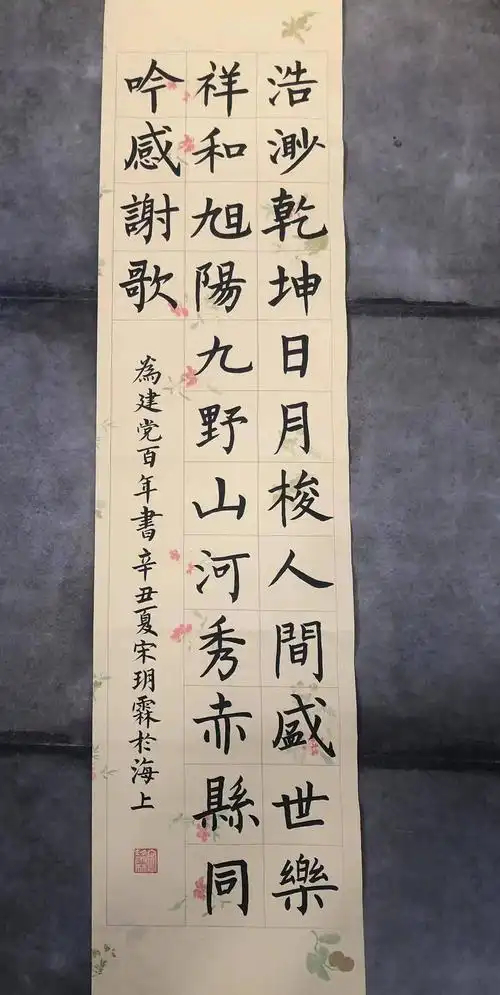 浩渺乾坤日月梭人間盛世樂
祥和旭陽九野山河秀赤縣同
吟感謝歌
為建党百年書辛丑夏宋玥霖於海上